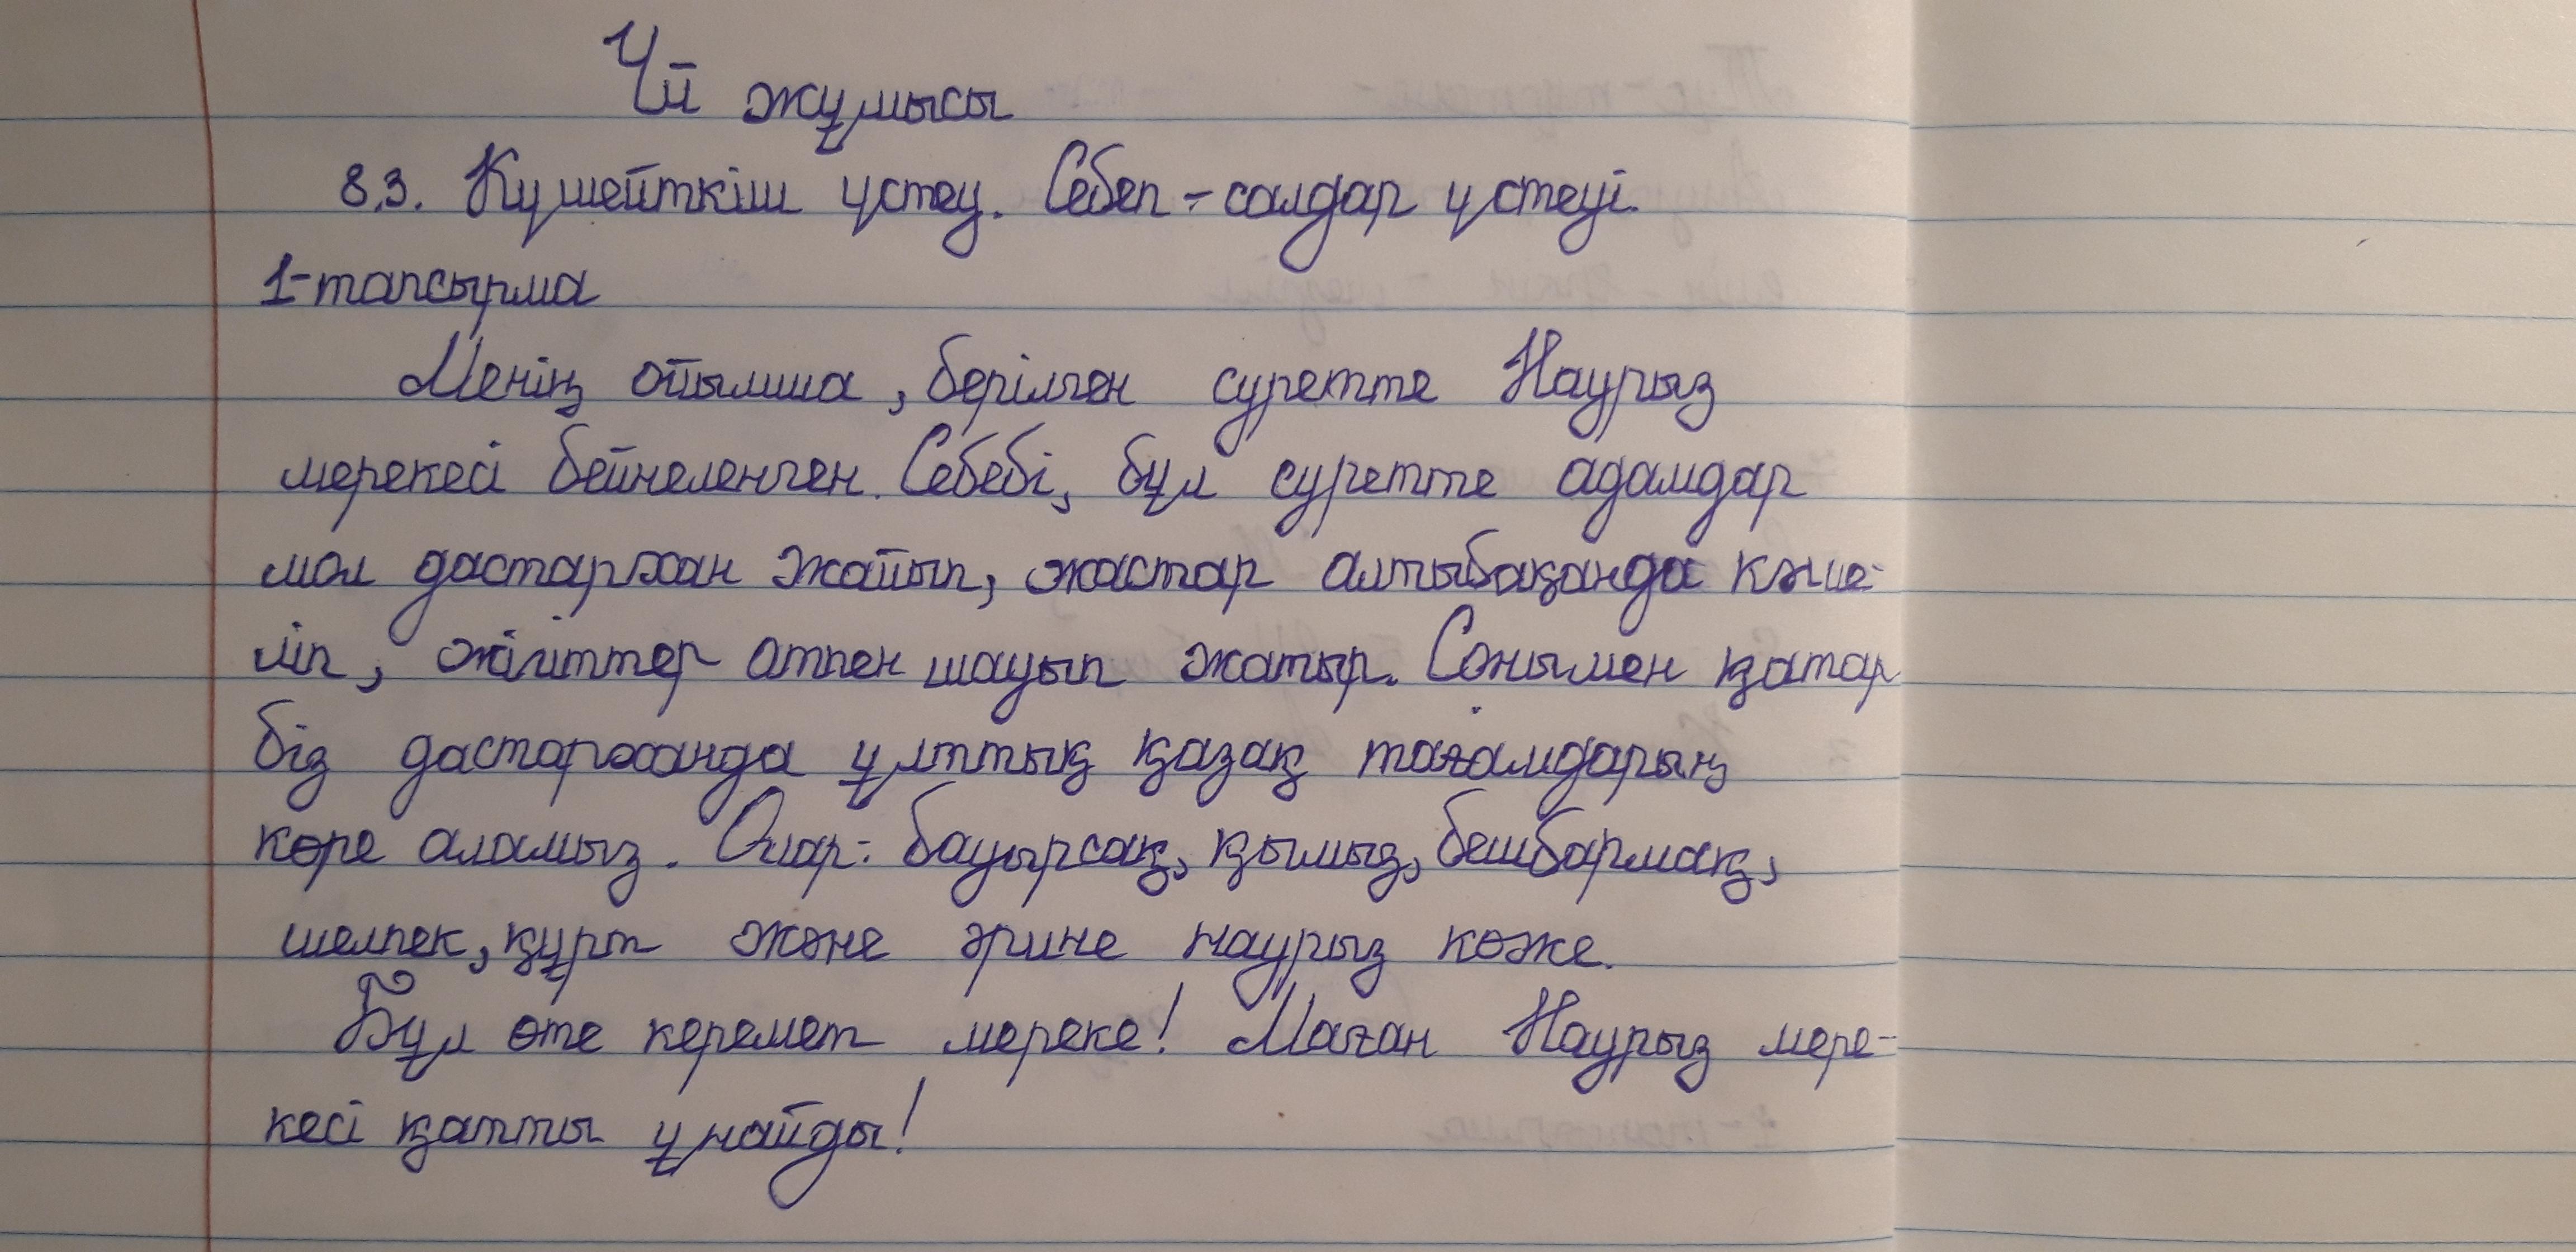 Үй жұмысы
8.3. Күшейткіш үстеу. Себеп-салдар үстеуі.
1-тапсырма
Менің ойымша, берілген суретте Наурыз
мерекесі бейнеленген. Себебі, бұл суретте адамдар
мол дастархан жайып, жастар алтыбақанда кәше-
ліп, жігіттер атпен шауып жатыр. Сонымен қатар
біз дастарханда ұлттық қазақ тағамдарың
көре аламыз. Олар: бауырсақ, қымыз, бешбармақ,
шелпек, құрт және әрине наурыз көже.
Бұл өте керемет мереке! Маған Наурыз мере-
кесі қатты ұнайды!